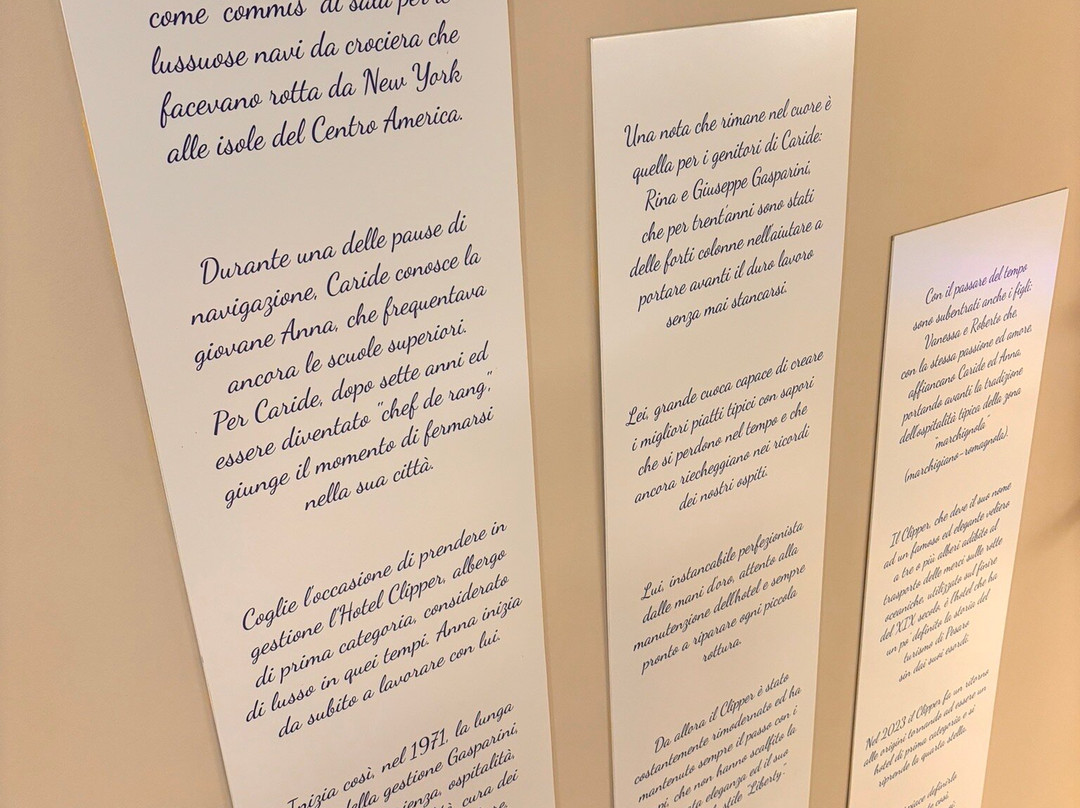 come "commis" di sala per le
lussuose navi da crociera che
facevano rotta da New York
alle isole del Centro America.
Durante una delle pause di
navigazione, Caride conosce la
giovane Anna, che frequentava
ancora le scuole superiori.
Per Caride, dopo sette anni ed
essere diventato "chef de rang,"
giunge il momento di fermarsi
nella sua città.
Coglie l'occasione di prendere in
gestione l'Hotel Clipper, albergo
di prima categoria, considerato
di lusso in quei tempi. Anna inizia
da subito a lavorare con lui.
Inizia così, nel 1971, la lunga
della gestione Gasparini,
ospitalità,
cura dei
Una nota che rimane nel cuore è
quella per i genitori di Caride:
Rina e Giuseppe Gasparini,
che per trent'anni sono stati
delle forti colonne nell'aiutare a
portare avanti il duro lavoro
senza mai stancarsi.
Lei, grande cuoca capace di creare
i migliori piatti tipici con sapori
che si perdono nel tempo e che
ancora riecheggiano nei ricordi
dei nostri ospiti.
Lui, instancabile perfezionista
dalle mani d'oro, attento alla
manutenzione dell'hotel e sempre
pronto a riparare ogni piccola
rottura.
Da allora il Clipper è stato
costantemente rimodernato ed ha
mantenuto sempre il passo con i
pi, che non hanno scalfito la
eleganza ed il suo
stile "Liberty."
Con il passare del tempo
sono subentrati anche i figli:
Vanessa e Roberto che,
con la stessa passione ed amore,
affiancano Caride ed Anna,
portando avanti la tradizione
dell'ospitalità tipica della zona
"marchignola"
(marchigiano-romagnola).
Il Clipper, che deve il suo nome
ad un famoso ed elegante veliero
a tre o più alberi adibito al
trasporto delle merci sulle rotte
oceaniche, utilizzato sul finire
del XIX secolo, è l'hotel che ha
un po' definito la storia del
turismo di Pesaro
sin dai suoi esordi.
Nel 2023 il Clipper fa un ritorno
alle origini tornando ad essere un
hotel di prima categoria e si
riprende la quarta stella.
definirlo
così,